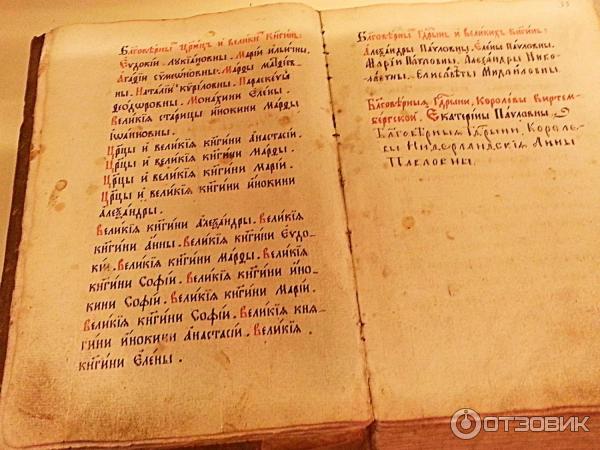 Благовѣрныⷯ Цр҃иць и великиⷯ кнг҃инь.
Еѵдокїи Лукїановны. Марїи ильины.
Агаѳїи сѷмїоновны. Марѳы матѳѣе
ны. Наталїи кѷрїловны. Параскеѵїи
ѳеодоровны. Монахини Елены.
Великїѧ старицы їнокини Марѳы
їѡанновны.
Цр҃цы и великїѧ кнг҃ини анастасїи.
Цр҃цы и великїѧ кнг҃ини Марѳы.
Цр҃цы и великїѧ кнг҃ини Марїи.
Цр҃цы и великїѧ кнг҃ини їнокини
алеѯандры.
Великїѧ кнг҃ини алеѯандры. Великїѧ
кнг҃ини анны. Великїѧ кнг҃ини Еѵдо
кїи. Великїѧ кнг҃ини Марѳы. Великїѧ
кнг҃ини Софїи. Великїѧ кнг҃ини їно
кини Софїи. Великїѧ кнг҃ини Марїи.
Великїѧ кнг҃ини Софїи. Великїѧ кнѧ
гини їнокини анастасїи. Великїѧ
кнг҃ини Елены.
Благовѣрныⷯ Гдр҃ынь и Великиⷯ Кнгинь.
Алеѯандры Паѵловны. Елены Паѵловны.
Марїи Паѵловны. Алеѯандры Нико
лаевны. Елисаветы Михайловны.
Благовѣрныѧ Гдр҃ыни, Королевы Виртем
бергской. Екатерины Паѵловны
Благовѣрныѧ Гдр҃ыни Короле
вы Нидерландскїѧ Анны
Павловны.
ОТЗОВИК